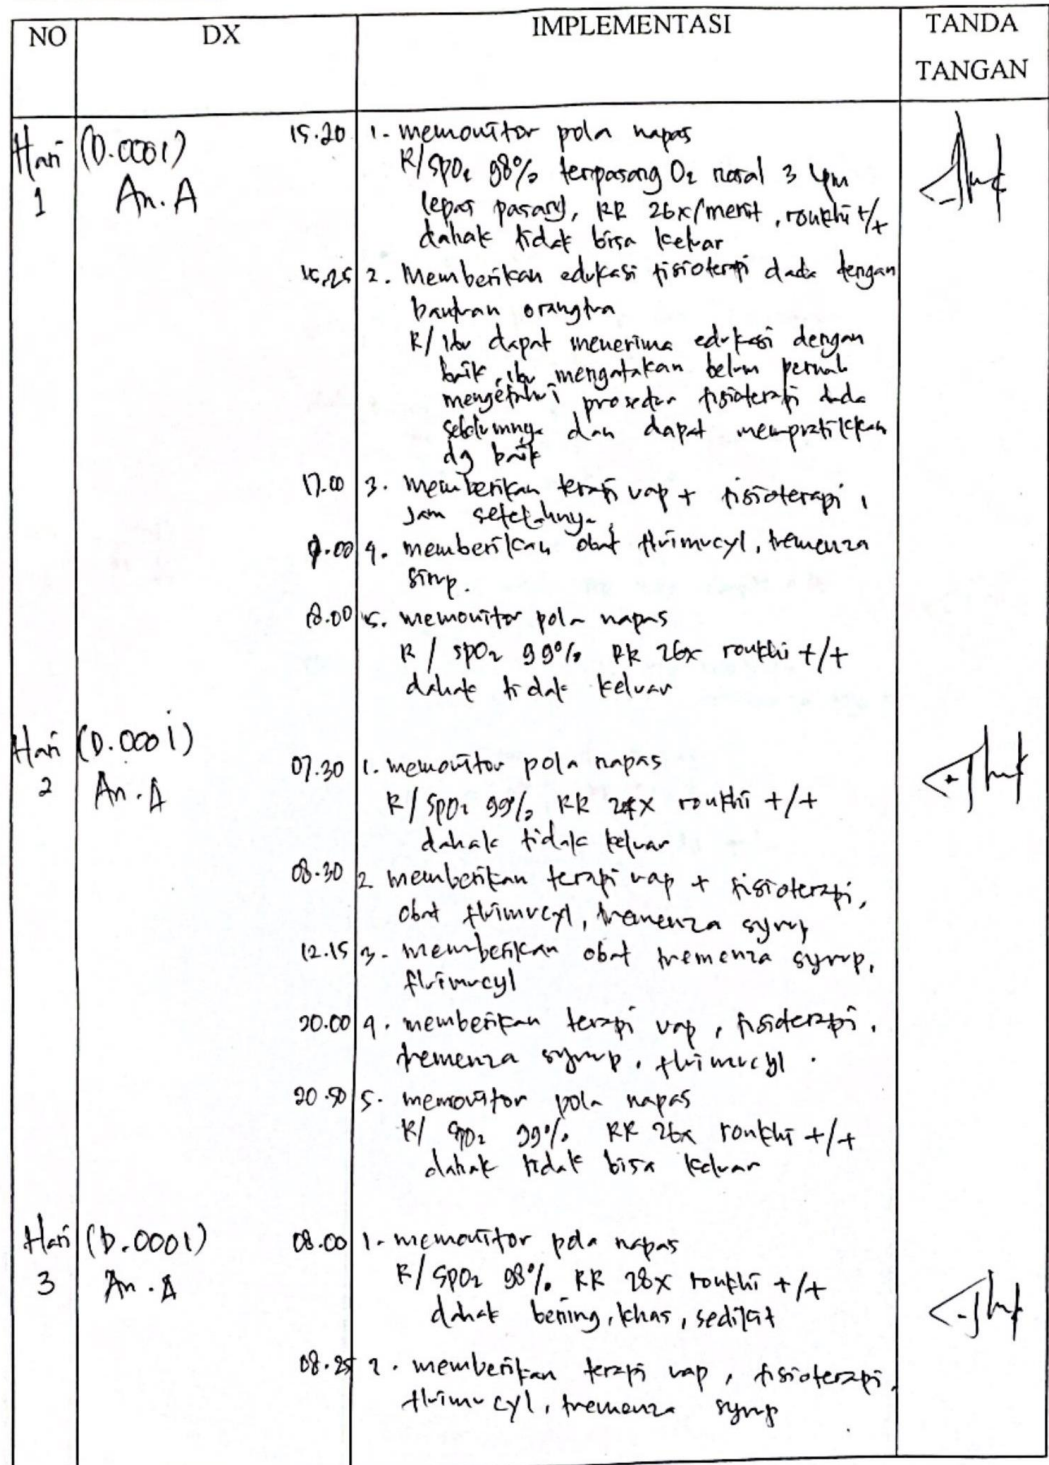 NO DX IMPLEMENTASI TANDA TANGAN
Hari 1 (D.0001) An. A
15.20 1. memonitor pola napas
R/ SpO2 98% terpasang O2 nasal 3 lpm
lepas pasang, RR 26x/menit, ronkhi +/+
dahak tidak bisa keluar
15.25 2. Memberikan edukasi fisioterapi dada dengan
bantuan orangtua
R/ Ibu dapat menerima edukasi dengan
baik, ibu mengatakan belum pernah
mengetahui prosedur fisioterapi dada
sebelumnya dan dapat mempratikkan
dg baik
17.00 3. memberikan terapi uap + fisioterapi 1
Jam setelahnya
4. memberikan obat fluimucyl, tremenza
sirup.
18.00 5. memonitor pola napas
R / SpO2 99% RR 26x ronkhi +/+
dahak tidak keluar
Hari 2 (D.0001) An. A
07.30 1. memonitor pola napas
R/ SpO2 99%, RR 24x ronkhi +/+
dahak tidak keluar
08.30 2 memberikan terapi uap + fisioterapi,
obat fluimucyl, tremenza syrup
12.15 3. memberikan obat tremenza syrup,
fluimucyl
20.00 4. memberikan terapi uap, fisioterapi,
tremenza syrup, fluimucyl.
20.50 5. memonitor pola napas
R/ SpO2 99%. RR 26x ronkhi +/+
dahak tidak bisa keluar
Hari 3 (D.0001) An. A
08.00 1. memonitor pola napas
R/ SpO2 98%. RR 28x ronkhi +/+
dahak bening, khas, sedikit
08.25 2. memberikan terapi uap, fisioterapi,
fluimucyl, tremenza syrup